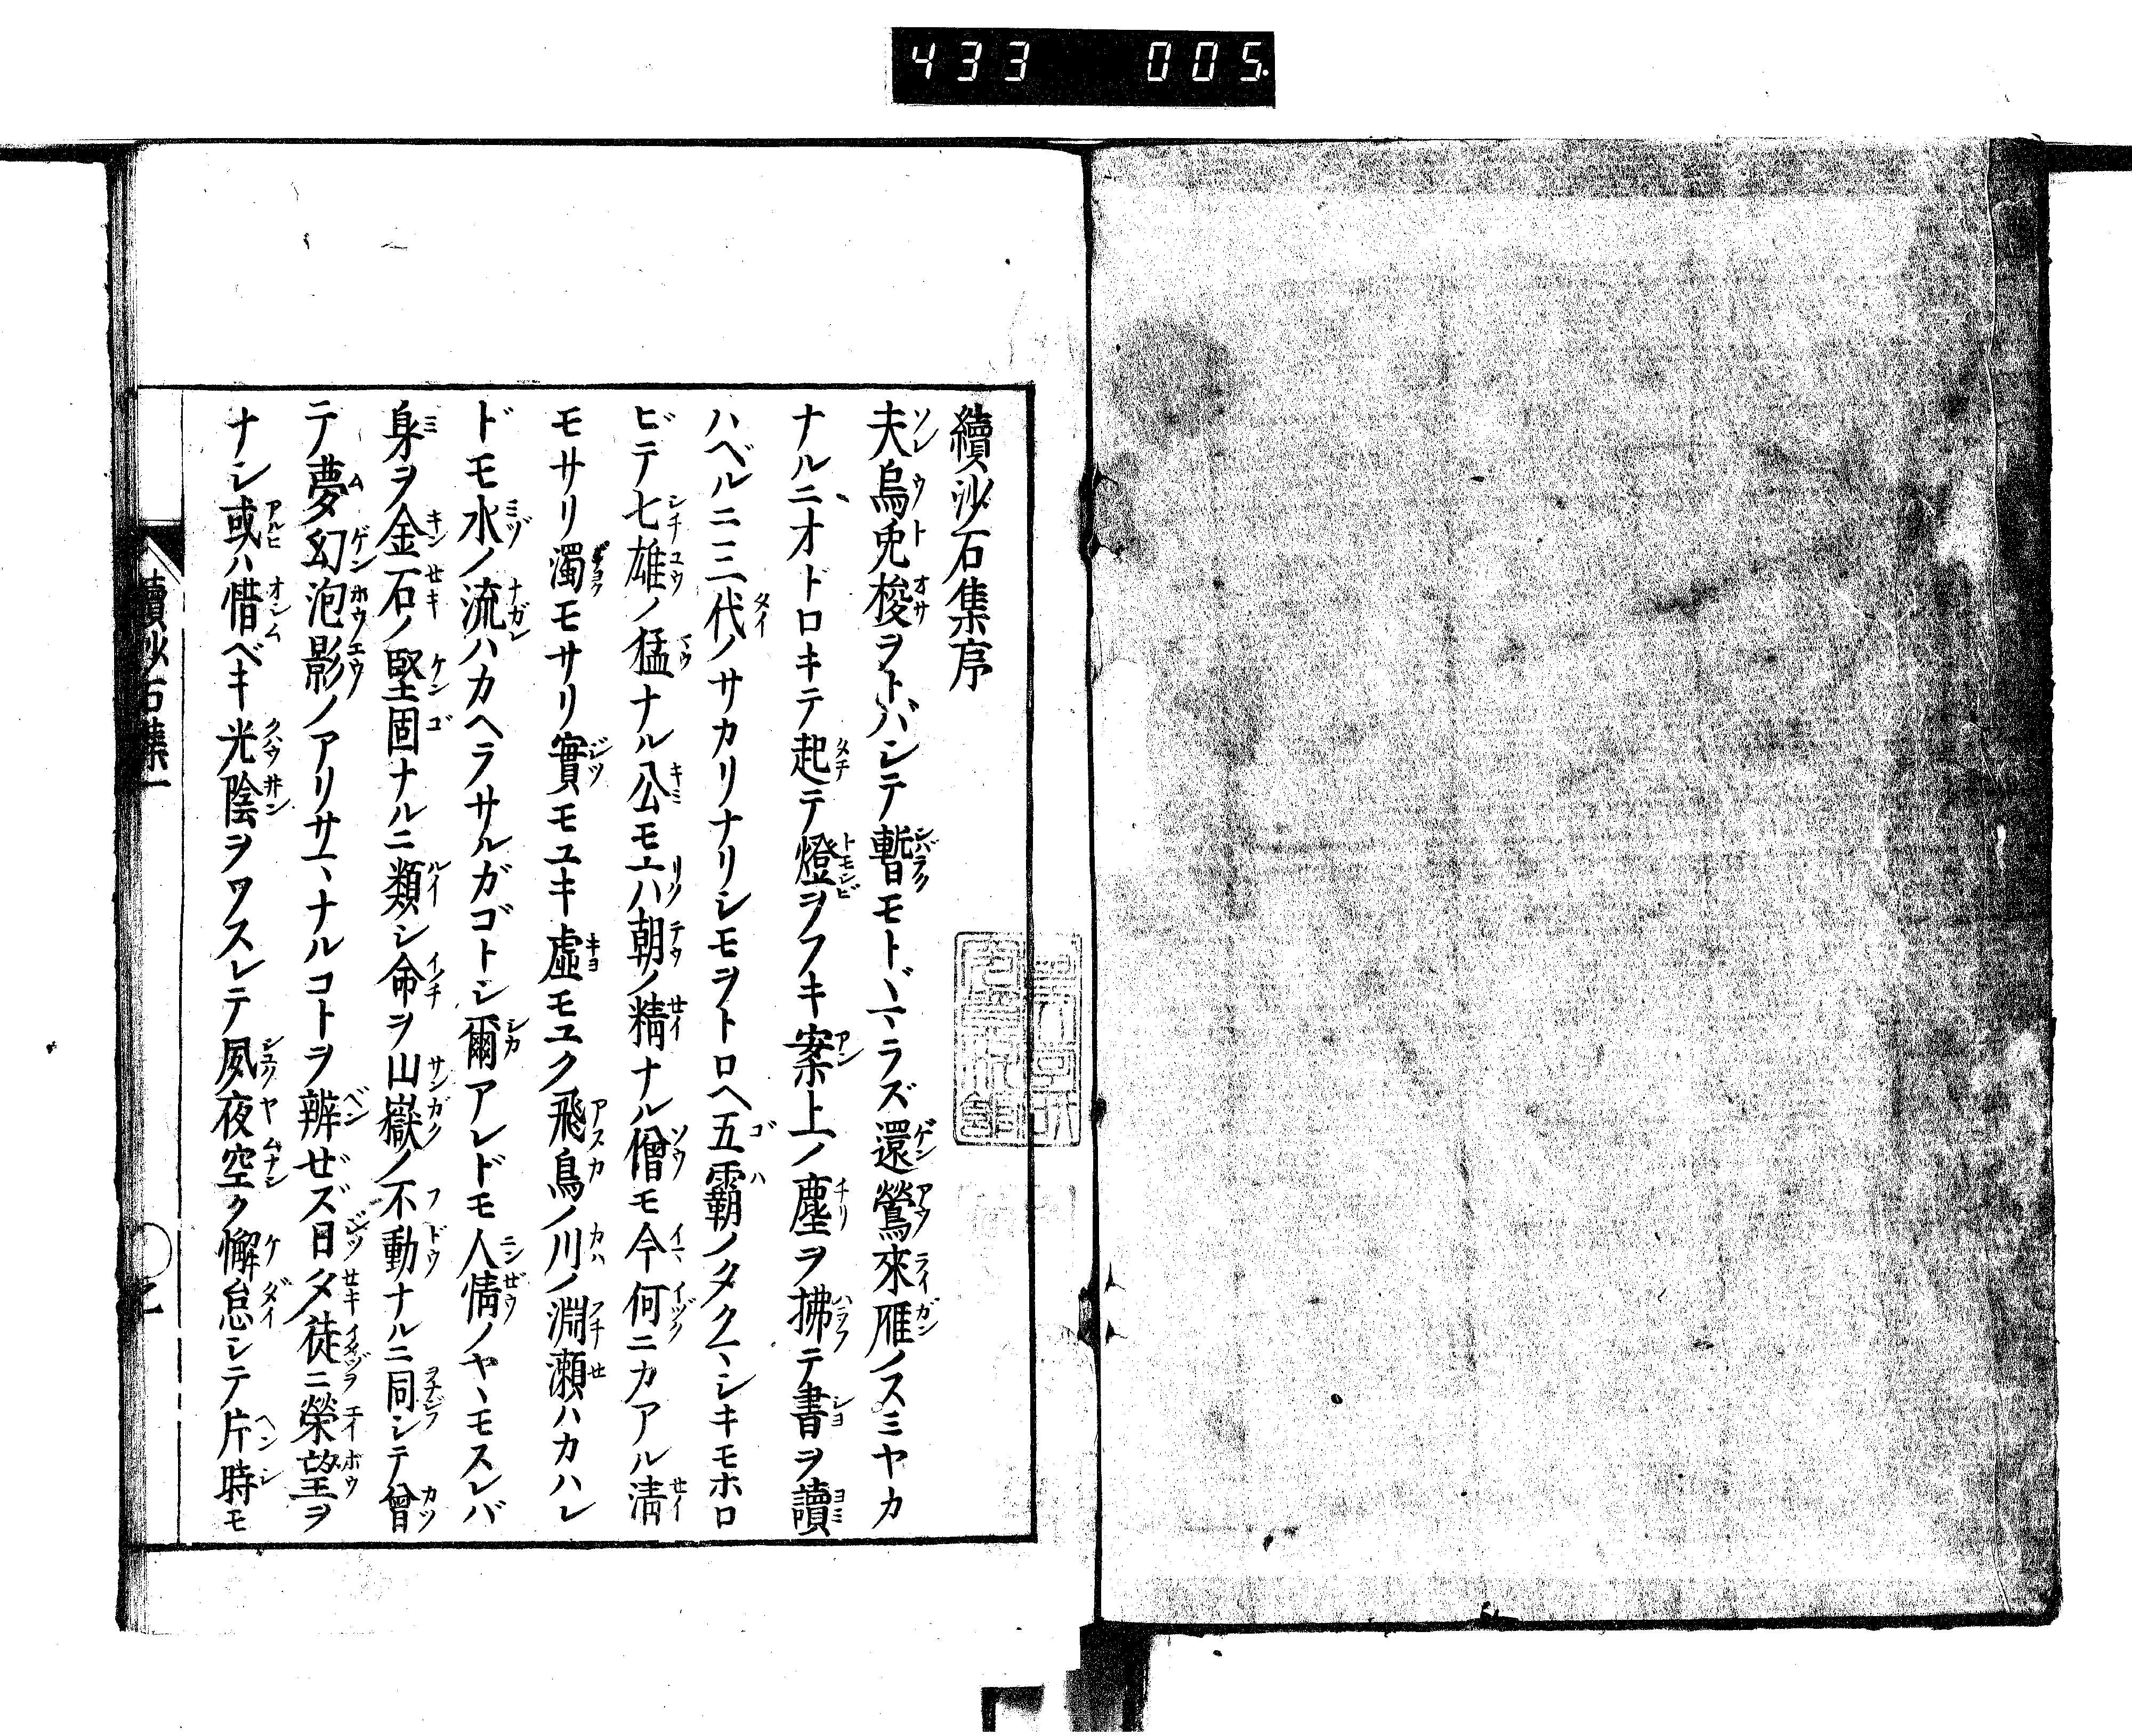 433 005.
續沙石集序
夫烏兎梭ヲトバシテ暫モトヾマラズ還鶯來雁ノスミヤカ
ナルニオドロキテ起テ燈ヲフキ案上ノ塵ヲ拂テ書ヲ讀
ハベルニ三代ノサカリナリシモヲトロヘ五霸ノタクマシキモホロ
ビテ七雄ノ猛ナル公モ六朝ノ精ナル僧モ今何ニカアル清
モサリ濁モサリ實モユキ虛モユク飛鳥ノ川ノ淵瀬ハカハレ
ドモ水ノ流ハカヘラサルガゴトシ爾アレドモ人情ノヤヽモスレバ
身ヲ金石ノ堅固ナルニ類シ命ヲ山嶽ノ不動ナルニ同シテ曾
テ夢幻泡影ノアリサマナルコトヲ辨ゼズ日夕徒ニ榮望ヲ
ナシ或ハ惜ベキ光陰ヲワスレテ夙夜空ク懈怠シテ片時モ
續沙石集一